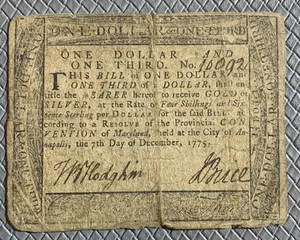 ONE-DOLLAR & ONE-THIRD
ONE DOLLAR AND
ONE THIRD. No. 10692
THIS BILL of ONE DOLLAR and
ONE THIRD of a DOLLAR, shall en-
title the BEARER hereof to receive GOLD or
SILVER, at the Rate of Four Shillings and Six-
pence Sterling per DOLLAR for the said BILL ac-
cording to a RESOLVE of the Provincial CON-
VENTION of Maryland, held at the City of An-
napolis, the 7th Day of December, 1775.